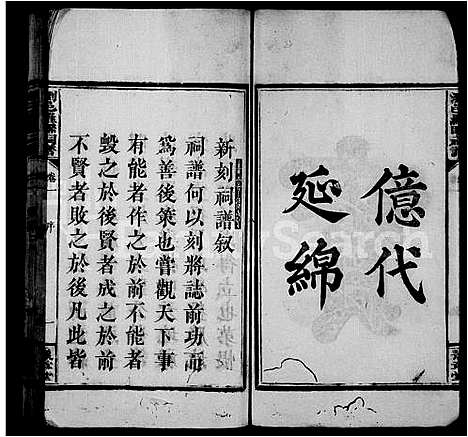 億代
延綿
新刻祠譜叙
祠譜何以刻將誌前功而
爲善後策也嘗觀天下事
有能者作之於前不能者
毀之於後賢者成之於前
不賢者敗之於後凡此皆
卷一
序